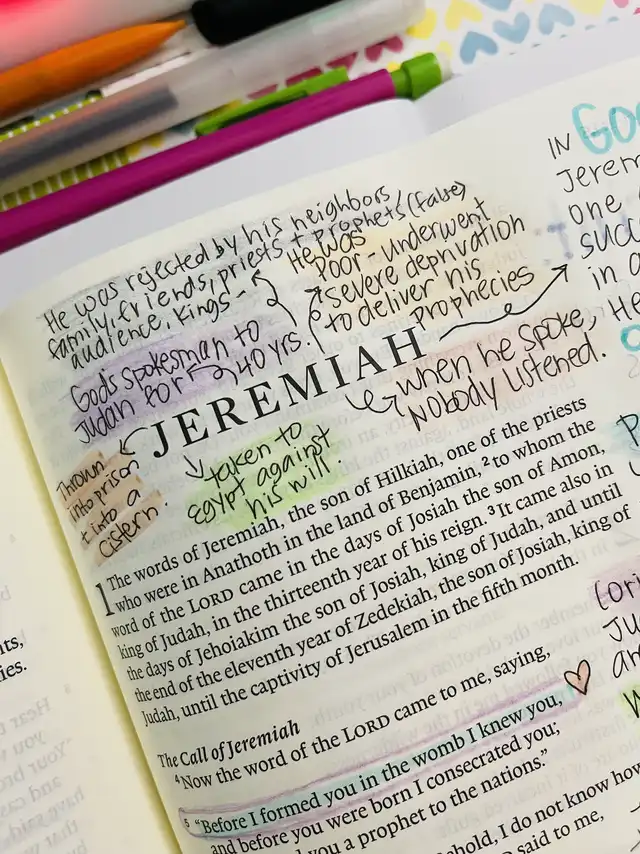 He was rejected by his neighbors,
family, friends, priests + prophets (false)
audience, kings -
He was
poor - underwent
severe deprivation
to deliver his
prophecies
God's spokesman to
Judah for 40 yrs.
JEREMIAH
when he spoke,
NOBODY LISTENED.
Thrown
into prison
+ into a
cistern.
taken to
Egypt against
his will.
1 The words of Jeremiah, the son of Hilkiah, one of the priests
who were in Anathoth in the land of Benjamin, 2 to whom the
word of the LORD came in the days of Josiah the son of Amon,
king of Judah, in the thirteenth year of his reign. 3 It came also in
the days of Jehoiakim the son of Josiah, king of Judah, and until
the end of the eleventh year of Zedekiah, the son of Josiah, king of
Judah, until the captivity of Jerusalem in the fifth month.
The Call of Jeremiah
4 Now the word of the LORD came to me, saying,
5 "Before I formed you in the womb I knew you,
and before you were born I consecrated you;
you a prophet to the nations."
I do not know how
said to me,
IN
one
in a